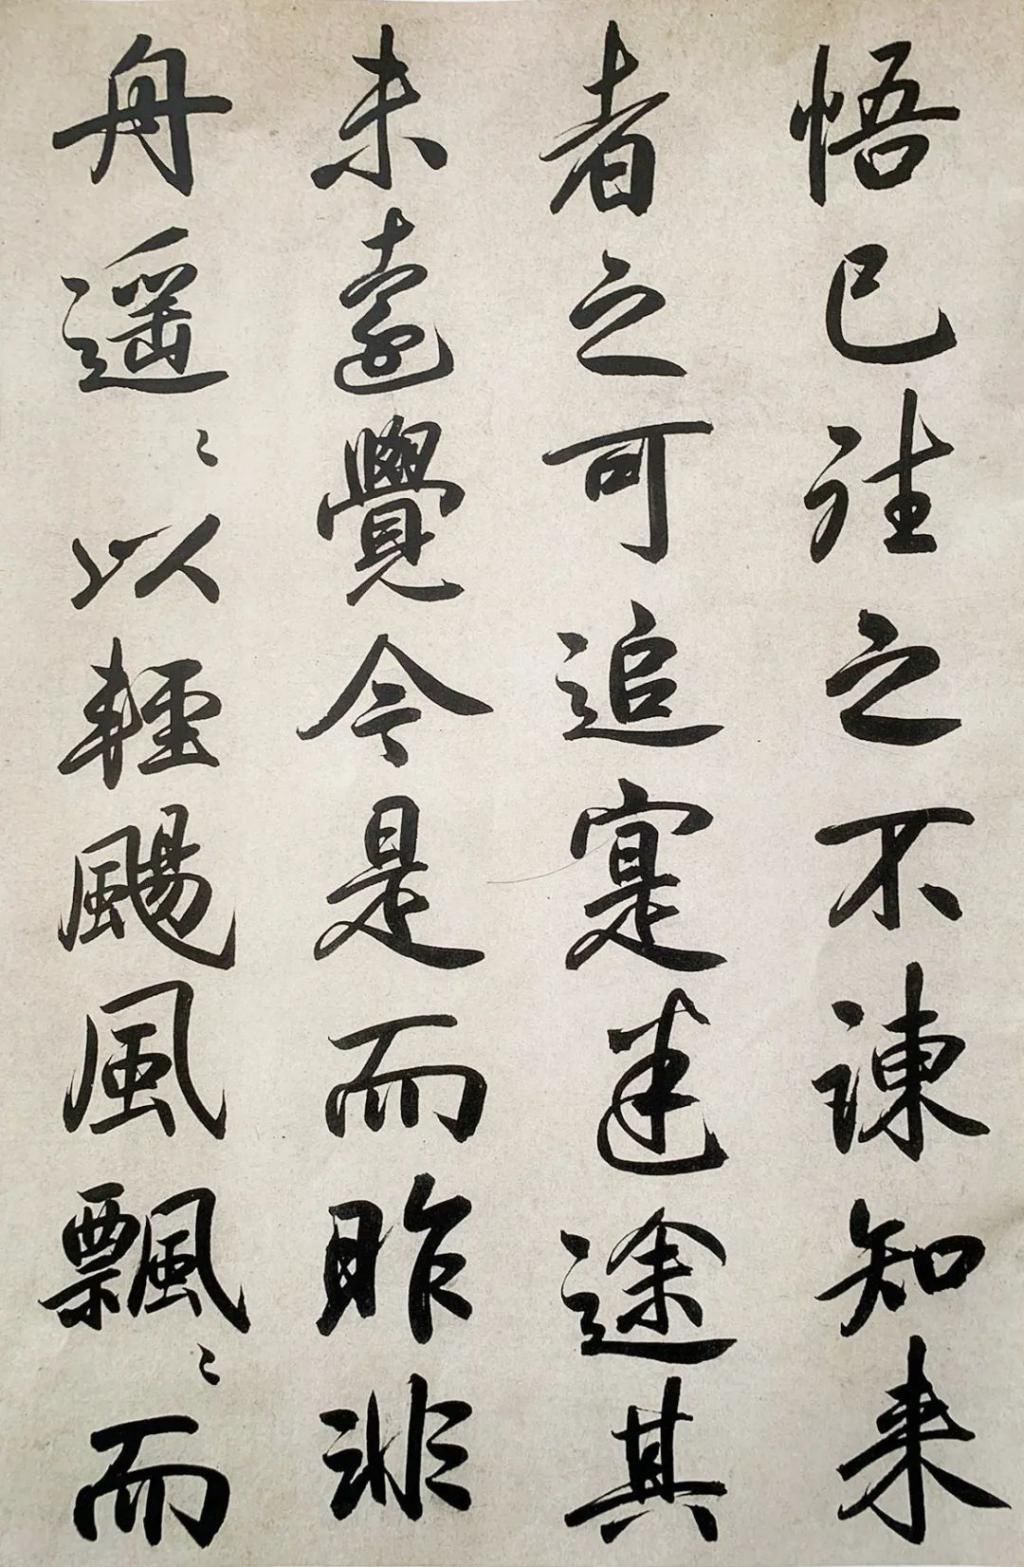 悟已往之不諫知来
者之可追寔迷途其
未遠覺今是而昨非
舟遥〻以輕颺風飄〻而